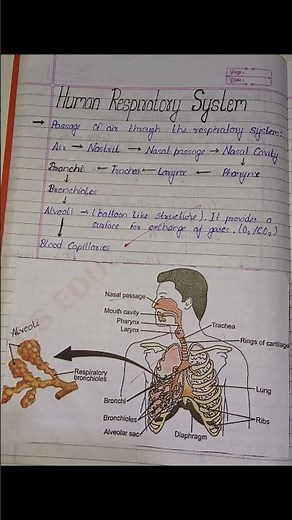 Human Respiratory System
→ Passage of air through the respiratory system:
Air → Nostril → Nasal passage → Nasal Cavity
Bronchi ← Trachea ← Larynx ← Pharynx
Bronchioles
Alveoli → (balloon like structure). It provides a
surface for exchange of gases. (O2/CO2)
Blood Capillaries
Nasal passage
Mouth cavity
Pharynx
Larynx
Trachea
Rings of cartilage
Alveoli
Respiratory
bronchioles
Lung
Bronchi
Bronchioles
Ribs
Alveolar sac
Diaphragm